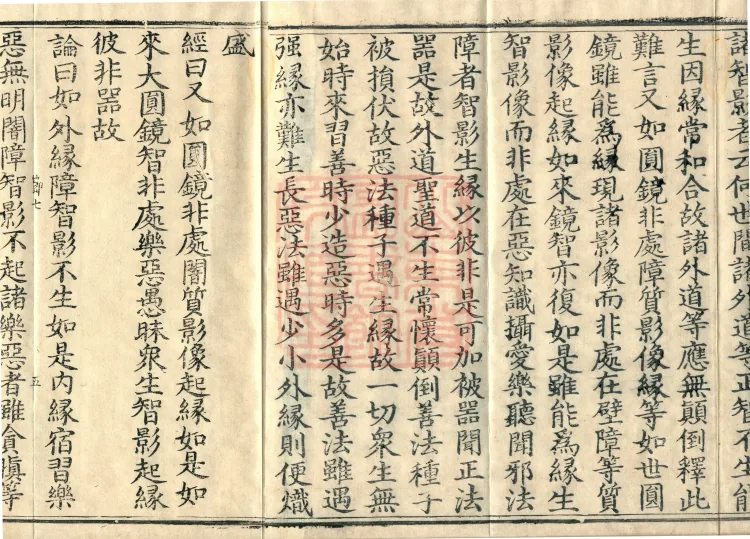 諸智影者云何世間諸外道等正智不生能
生因緣常和合故諸外道等應無顛倒釋此
難言又如圓鏡非處障質影像緣等如世圓
鏡雖能爲緣現諸影像而非處在壁障等質
影像起緣如來鏡智亦復如是雖能爲緣生
智影像而非處在惡知識攝愛樂聽聞邪法
障者智影生緣以彼非是可加被器聞正法
器是故外道聖道不生常懷顚倒善法種子
被損伏故惡法種子遇生緣故一切衆生無
始時來習善時少造惡時多是故善法雖遇
强緣亦難生長惡法雖遇少小外緣則便熾
盛
經曰又如圓鏡非處闇質影像起緣如是如
來大圓鏡智非處樂惡愚昧衆生智影起緣
彼非器故
論曰如外緣障智影不生如是內緣宿習樂
惡無明闇障智影不起諸樂惡者雖貪瞋等
五